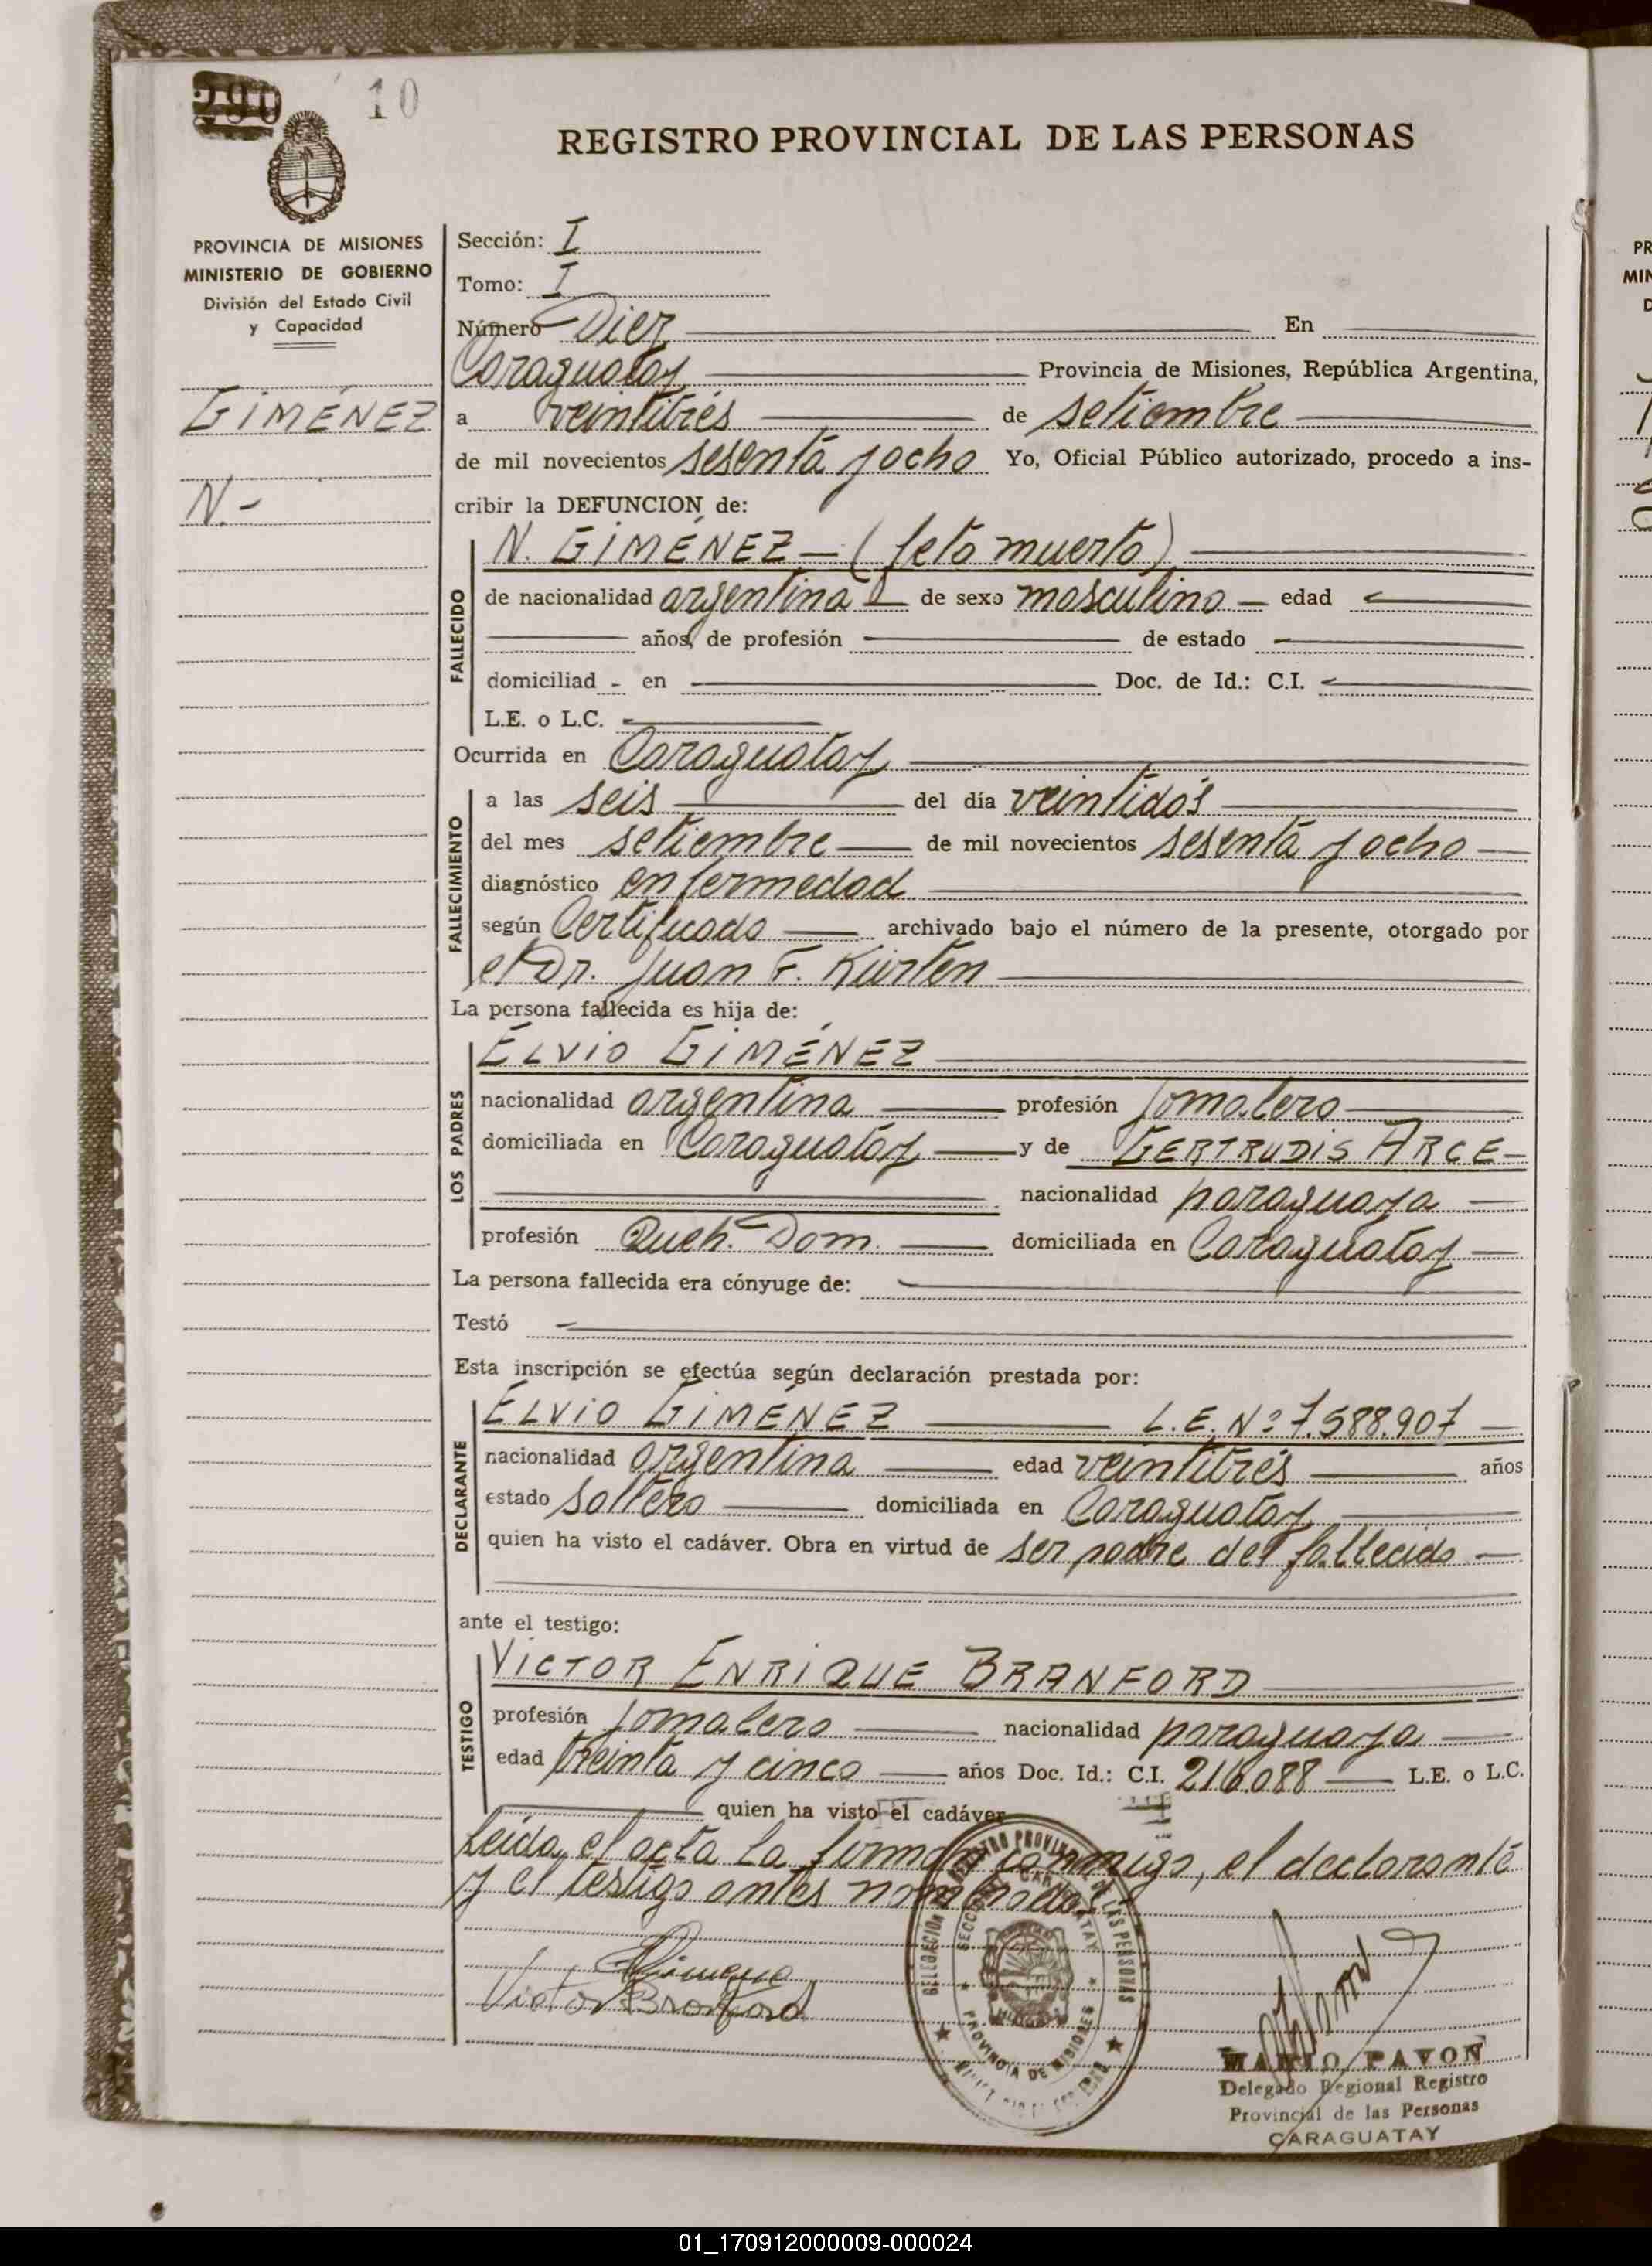 290 10
REGISTRO PROVINCIAL DE LAS PERSONAS
PROVINCIA DE MISIONES
MINISTERIO DE GOBIERNO
División del Estado Civil
y Capacidad
GIMÉNEZ
N.-
Sección: I
Tomo: I
Número Diez En
Caraguatay Provincia de Misiones, República Argentina,
a veintitrés de setiembre
de mil novecientos sesenta y ocho Yo, Oficial Público autorizado, procedo a ins-
cribir la DEFUNCION de:
FALLECIDO
N. GIMÉNEZ - (feto muerto)
de nacionalidad argentina de sexo masculino edad
años, de profesión de estado
domiciliad - en Doc. de Id.: C.I.
L.E. o L.C.
Ocurrida en Caraguatay
FALLECIMIENTO
a las seis del día veintidós
del mes setiembre de mil novecientos sesenta y ocho
diagnóstico enfermedad
según Certificado archivado bajo el número de la presente, otorgado por
el Dr. Juan F. Kürten
La persona fallecida es hija de:
LOS PADRES
ELVIO GIMÉNEZ
nacionalidad argentina profesión Jornalero
domiciliada en Caraguatay y de GERTRUDIS ARCE
nacionalidad paraguaya
profesión Queh. Dom. domiciliada en Caraguatay
La persona fallecida era cónyuge de:
Testó
Esta inscripción se efectúa según declaración prestada por:
DECLARANTE
ELVIO GIMÉNEZ L.E. Nº 7.588.907
nacionalidad argentina edad veintitrés años
estado Soltero domiciliada en Caraguatay
quien ha visto el cadáver. Obra en virtud de ser padre del fallecido
ante el testigo:
TESTIGO
VICTOR ENRIQUE BRANFORD
profesión Jornalero nacionalidad paraguaya
edad treinta y cinco años Doc. Id.: C.I. 216.088 L.E. o L.C.
quien ha visto el cadáver
Leída el acta la firman conmigo, el declarante
y el testigo antes nombrados
Gimenez
Victor Branford
DELEGACION REGISTRO PROVINCIAL DE LAS PERSONAS
SECCION CARAGUATAY
PROVINCIA DE MISIONES
MARIO PAVON
Delegado Regional Registro
Provincial de las Personas
CARAGUATAY
PR
MIN
D
01_170912000009-000024